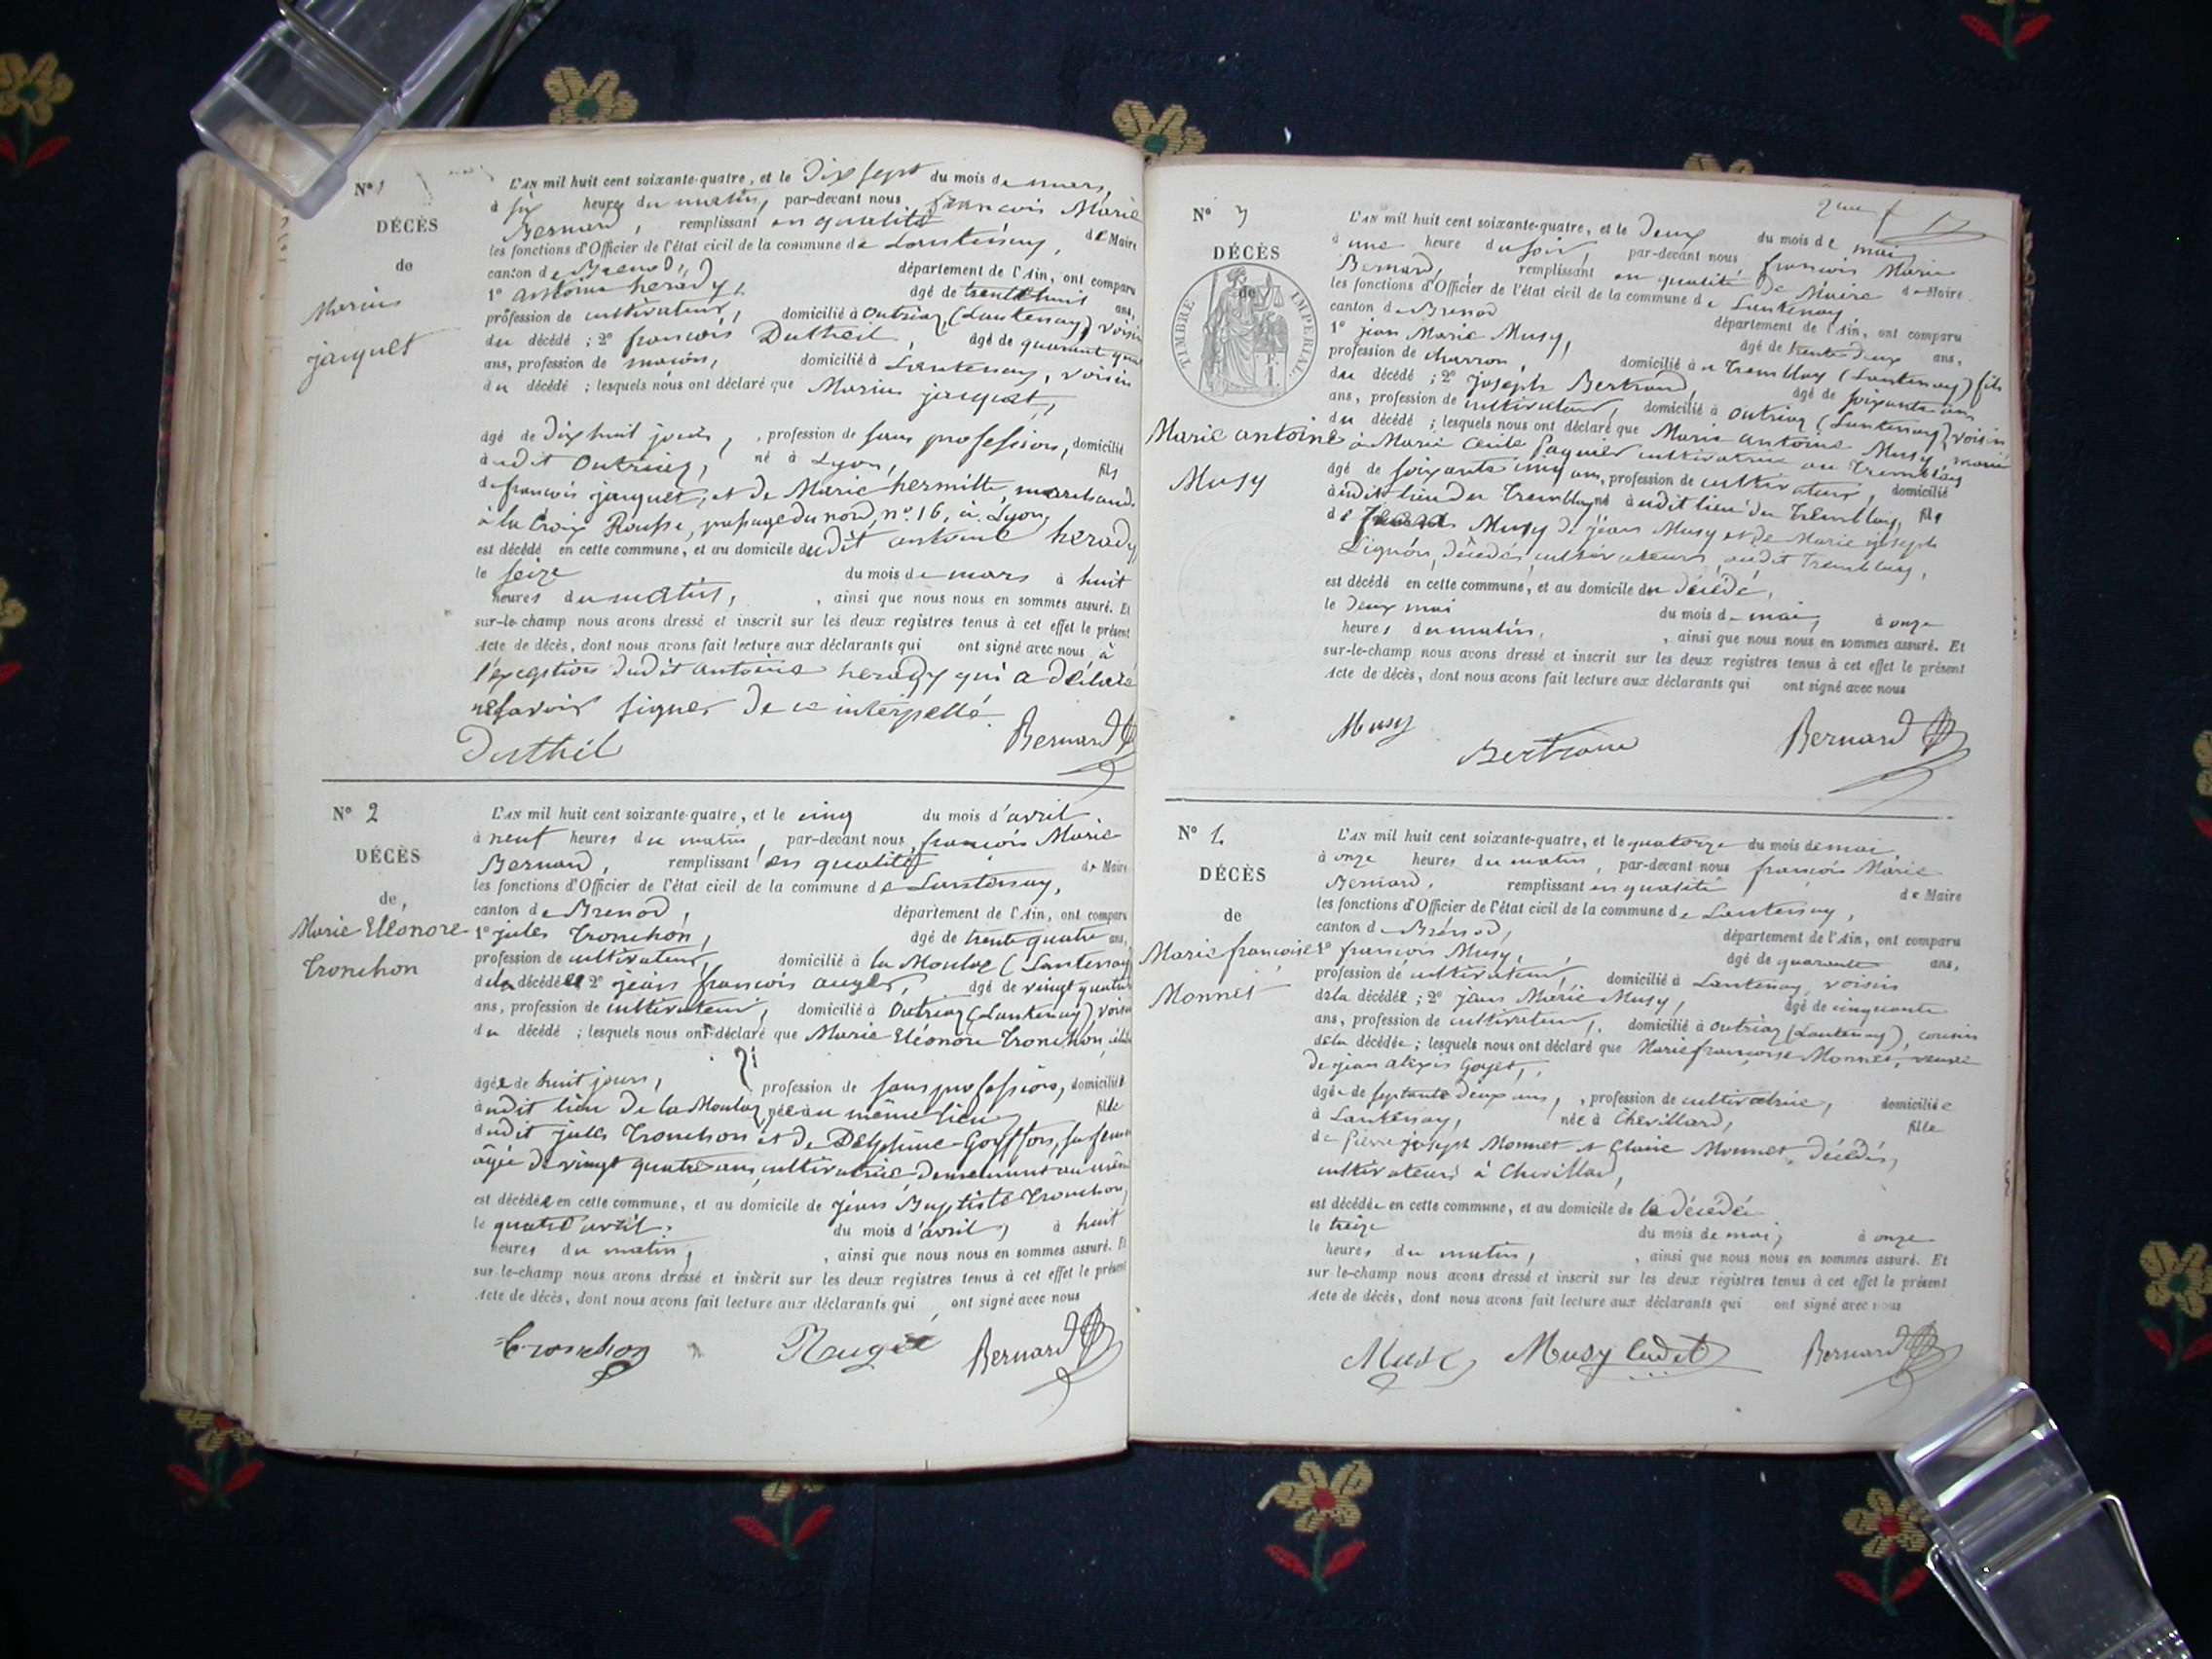 N° 1
DÉCÈS
de
Marius
jacquet
L'AN mil huit cent soixante-quatre, et le Dix sept du mois de mars,
à six heures du matin, par-devant nous françois Marie
Bernard, remplissant en qualité de Maire
les fonctions d'Officier de l'état civil de la commune de Lantenay,
canton de Brenod, département de l'Ain, ont comparu
1° antoine herady, âgé de trente huit ans,
profession de cultivateur, domicilié à Outriaz, (Lantenay) voisin
du décédé ; 2° françois Dutheil, âgé de quarante quatre
ans, profession de maçon, domicilié à Lantenay, voisin
du décédé ; lesquels nous ont déclaré que Marius jacquet,
âgé de dix huit jours, profession de sans profession, domicilié
à udit Outriaz, né à Lyon, fils
de françois jacquet, et de Marie hermitte, marchands
à la Croix Rousse, passage du nord, n° 16, à Lyon,
est décédé en cette commune, et au domicile dudit antoine herady
le seize du mois de mars à huit
heures du matin, , ainsi que nous nous en sommes assuré. Et
sur-le-champ nous avons dressé et inscrit sur les deux registres tenus à cet effet le présent
Acte de décès, dont nous avons fait lecture aux déclarants qui ont signé avec nous à
l'exception dudit antoine herady qui a déclaré
ne savoir signer de ce interpellé.
Dutheil Bernard
N° 2
DÉCÈS
de,
Marie Eléonore
Tronchon
L'AN mil huit cent soixante-quatre, et le cinq du mois d'avril
à neuf heures du matin, par-devant nous, françois Marie
Bernard, remplissant en qualité de Maire
les fonctions d'Officier de l'état civil de la commune de Lantenay,
canton de Brenod, département de l'Ain, ont comparu
1° jules Tronchon, âgé de trente quatre ans,
profession de cultivateur, domicilié à la Moulaz (Lantenay)
de la décédée 2° jean françois auger, âgé de vingt quatre
ans, profession de cultivateur, domicilié à Outriaz (Lantenay) voisin
du décédé ; lesquels nous ont déclaré que Marie Eléonore Tronchon,
âgée de huit jours, profession de sans profession, domiciliée
audit lieu de la Moulaz, née au même lieu fille
dudit jules Tronchon et de Delphine Goyffon, sa femme
âgée de vingt quatre ans, cultivatrice, demeurant au même
est décédée en cette commune, et au domicile de jean Baptiste Tronchon,
le quatre avril. du mois d'avril, à huit
heures du matin, , ainsi que nous nous en sommes assuré. Et
sur-le-champ nous avons dressé et inscrit sur les deux registres tenus à cet effet le présent
Acte de décès, dont nous avons fait lecture aux déclarants qui ont signé avec nous
Tronchon Bernard
N° 3
DÉCÈS
de
TIMBRE IMPÉRIAL
Marie antoine
Musy
L'AN mil huit cent soixante-quatre, et le Deux du mois de mai
à une heure du soir, par-devant nous françois Marie
Bernard, remplissant en qualité de Maire de Maire
les fonctions d'Officier de l'état civil de la commune de Lantenay
canton de Brenod département de l'Ain, ont comparu
1° jean Marie Musy, âgé de trente deux ans,
profession de charron, domicilié à u Tremblay (Lantenay) fils
du décédé ; 2° joseph Bertrand, âgé de soixante un
ans, profession de cultivateur, domicilié à Outriaz (Lantenay), voisin
du décédé ; lesquels nous ont déclaré que Marie antoine Musy, marié
à Marie Cécile Paquier cultivatrice au Tremblay
âgé de soixante cinq ans, profession de cultivateur, domicilié
audit lieu du Tremblay né audit lieu du Tremblay, fils
de Musy de jean Musy et de Marie joseph
Lignon, décédés, cultivateurs, audit Tremblay,
est décédé en cette commune, et au domicile du décédé,
le Deux mai du mois de mai, à onze
heures du matin, , ainsi que nous nous en sommes assuré. Et
sur-le-champ nous avons dressé et inscrit sur les deux registres tenus à cet effet le présent
Acte de décès, dont nous avons fait lecture aux déclarants qui ont signé avec nous
Musy Bertrand Bernard
N°
DÉCÈS
de
Marie françoise
Monnet
L'AN mil huit cent soixante-quatre, et le quatorze du mois de mai
à onze heures du matin, par-devant nous françois Marie
Bernard, remplissant en qualité de Maire
les fonctions d'Officier de l'état civil de la commune de Lantenay,
canton de Brenod, département de l'Ain, ont comparu
1° françois Musy, âgé de quarante ans,
profession de cultivateur, domicilié à Lantenay, voisin
de la décédée ; 2° jean Marie Musy, âgé de cinquante
ans, profession de cultivateur, domicilié à Outriaz (Lantenay), cousin
de la décédée ; lesquels nous ont déclaré que Marie françoise Monnet, veuve
de jean alexis Goyet,
âgée de septante deux ans, profession de cultivatrice, domiciliée
à Lantenay, née à Chevillard, fille
de Pierre joseph Monnet et Claire Monnet, décédés,
cultivateurs à Chevillard,
est décédée en cette commune, et au domicile de la décédée
le treize du mois de mai, à onze
heures du matin, , ainsi que nous nous en sommes assuré. Et
sur-le-champ nous avons dressé et inscrit sur les deux registres tenus à cet effet le présent
Acte de décès, dont nous avons fait lecture aux déclarants qui ont signé avec nous
Musy Musy Cadet Bernard